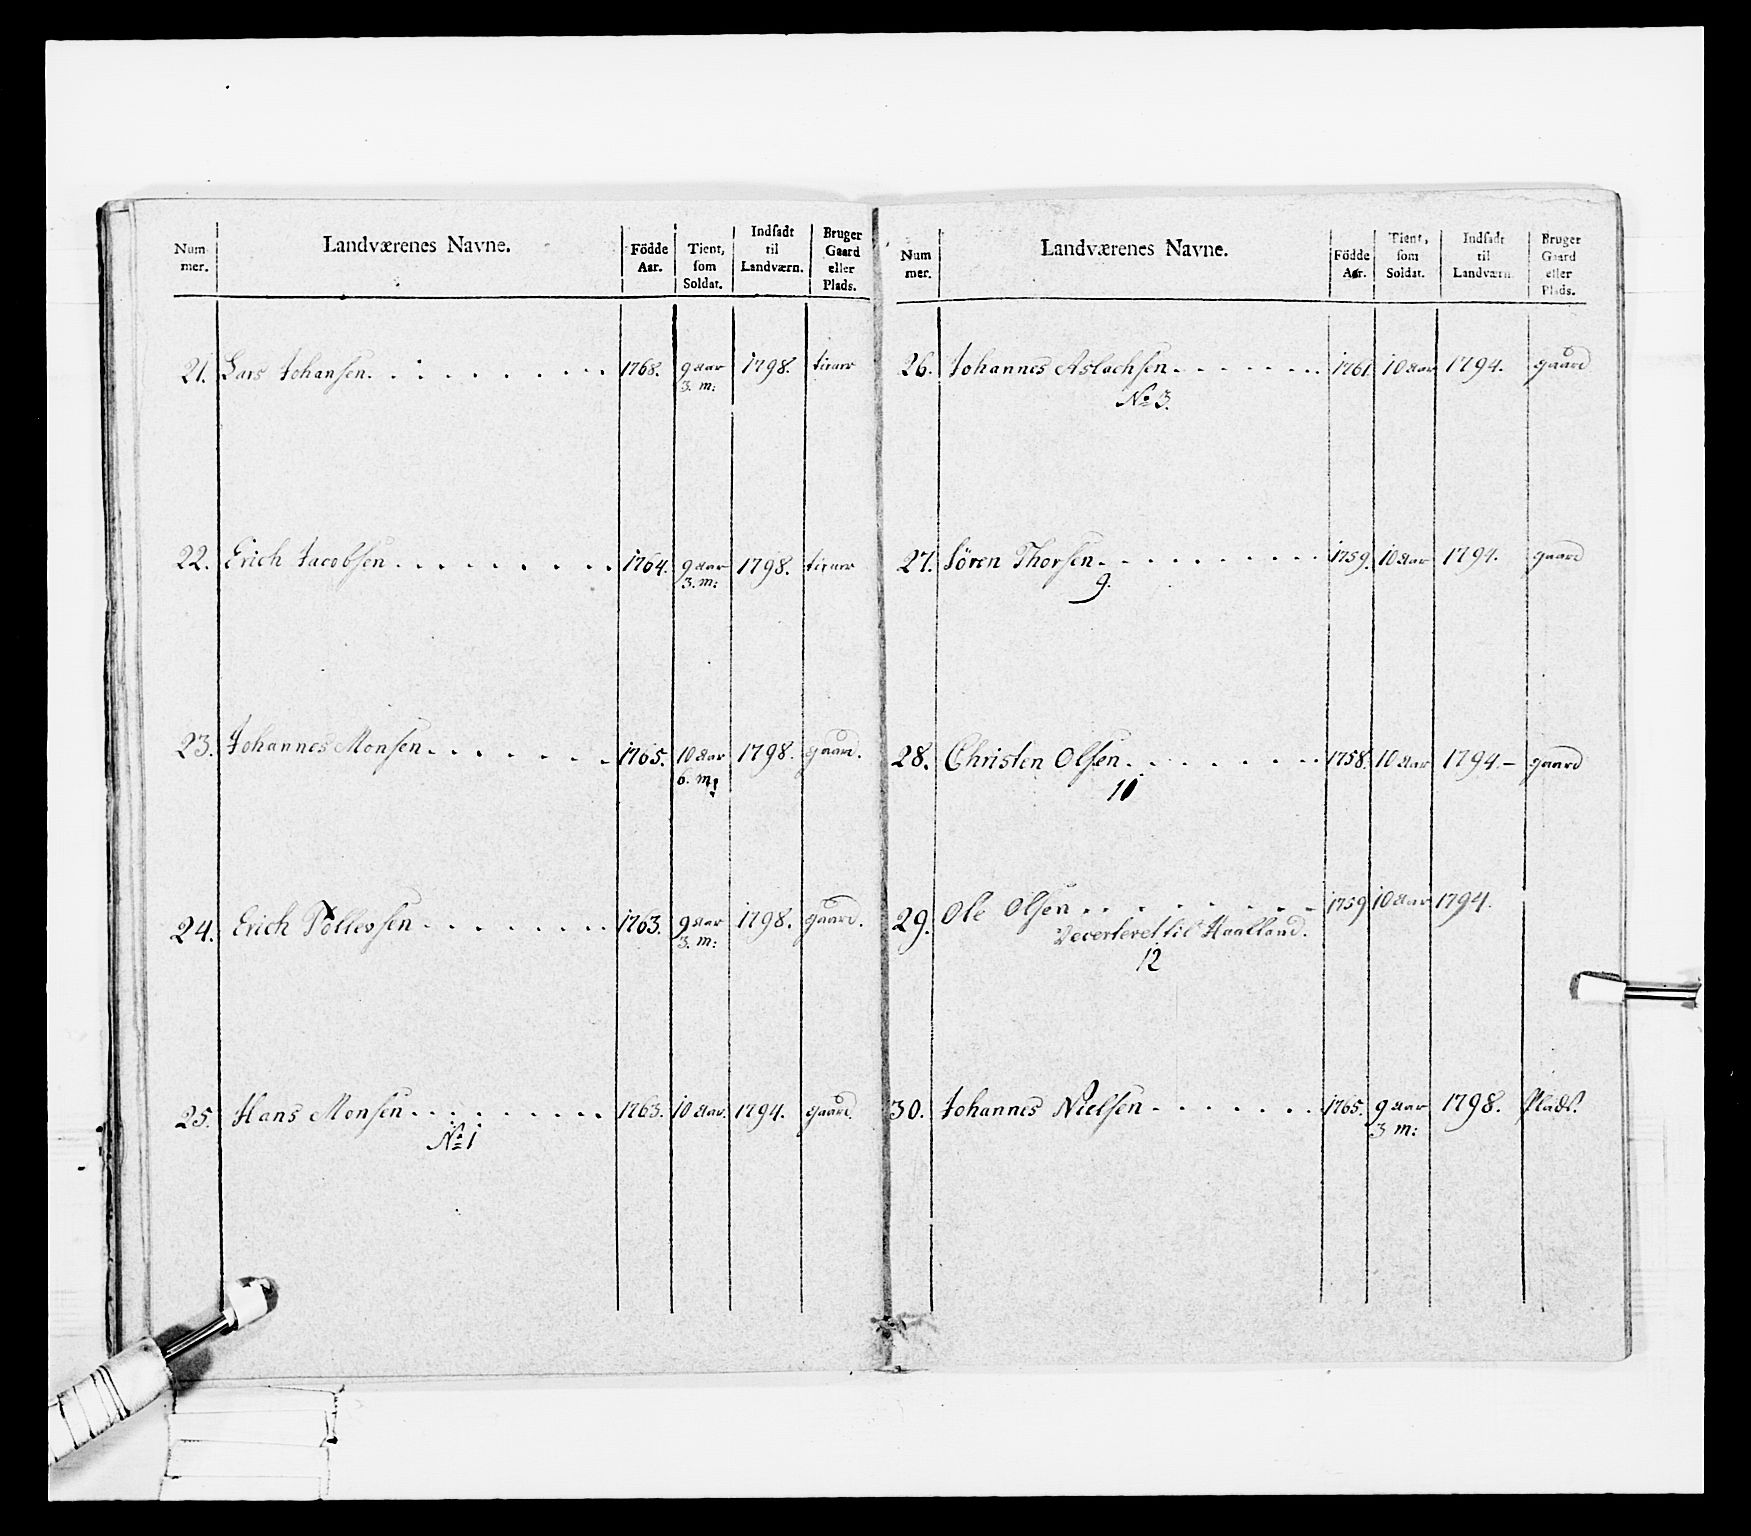 Num-
mer.
Landværenes Navne.
Födde
Aar.
Tient,
som
Soldat.
Indsadt
til
Landværn.
Bruger
Gaard
eller
Plads.
21. Lars Johansen. 1768. 9 aar 1798.
3. m:
22. Erich Jacobsen 1764. 9 aar 1798.
3. m:
23. Johannes Monsen 1765. 10 aar 1798. gaard.
6. m:
24. Erich Tollevsen 1763. 9 aar 1798. gaard.
3. m:
25. Hans Monsen 1763. 10 aar. 1794. gaard.
No 1
Num
mer.
Landværenes Navne.
Födde
Aar.
Tient,
som
Soldat.
Indsadt
til
Landværn.
Bruger
Gaard
eller
Plads.
26. Johannes Aslachsen 1761 10 aar 1794. gaard
No 3.
27. Sören Thorsen 1759. 10 aar 1794. gaard
9.
28. Christen Olsen 1758. 10 aar 1794.– gaard
10
29. Ole Olsen 1759 10 aar 1794.
Deserteret til Haalland.
12
30. Johannes Nielsen 1765. 9 aar 1798. Plads.
3 m: